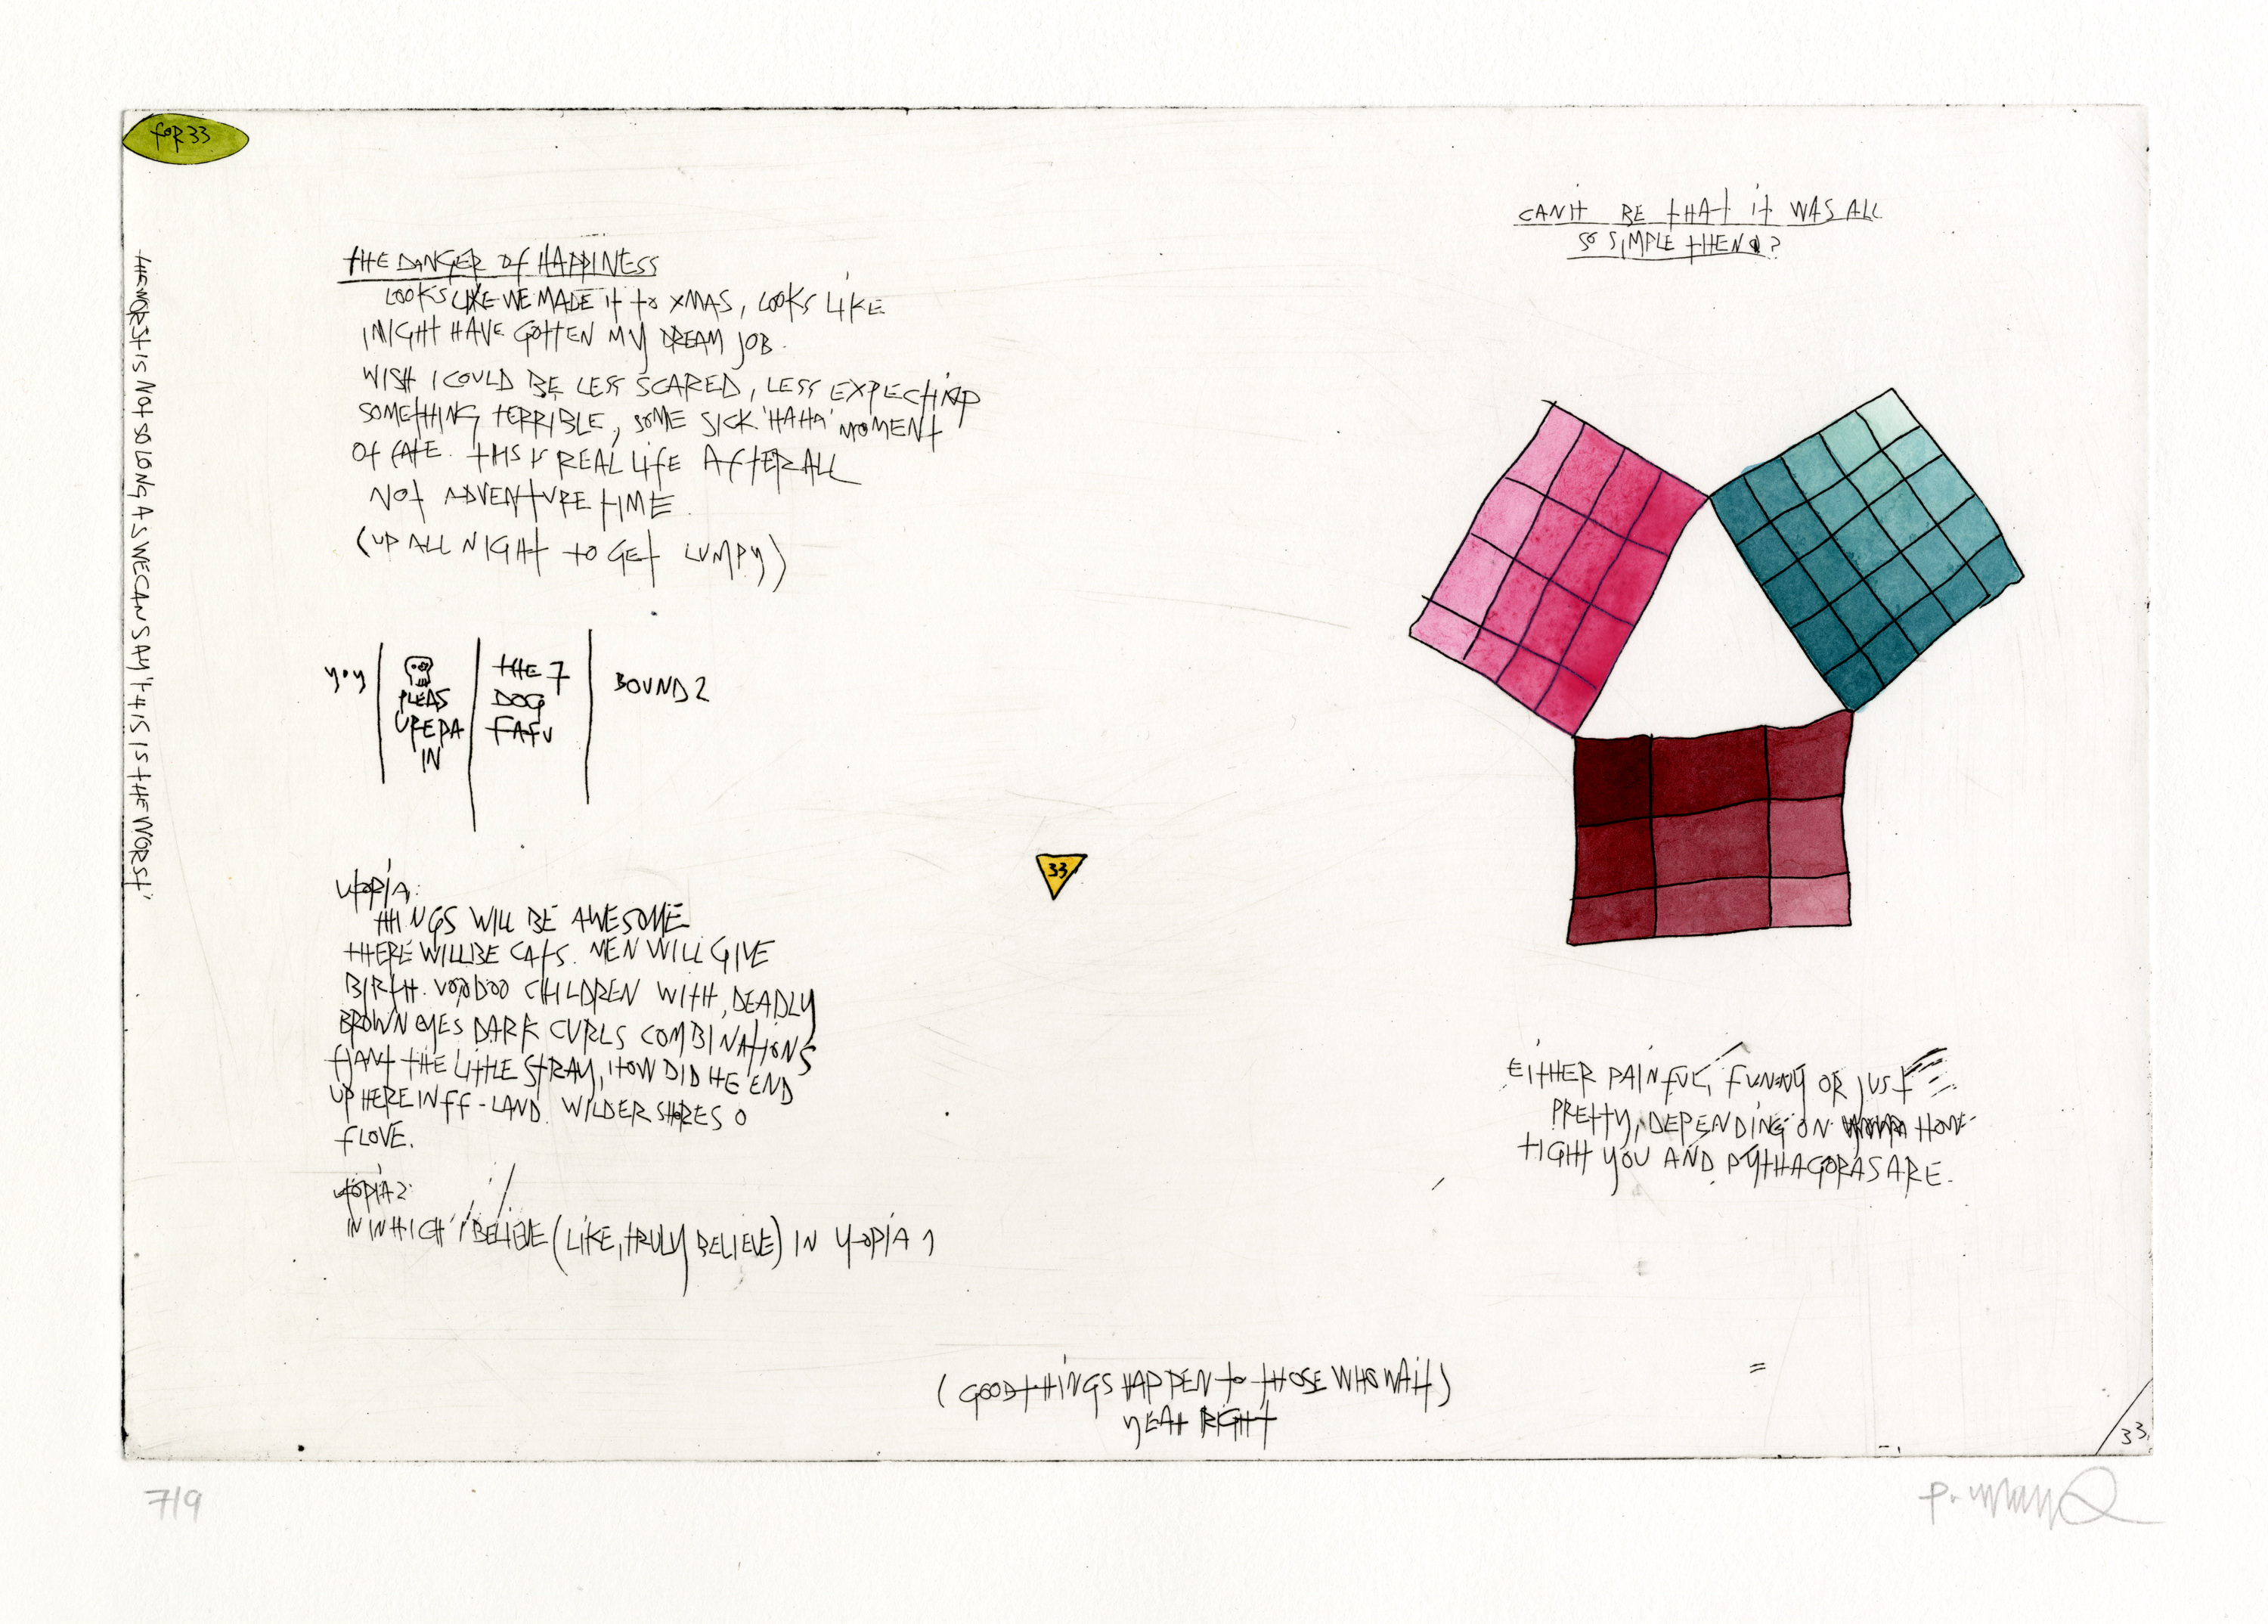 for 33
THE WORST IS NOT SO LONG AS WE CAN SAY 'THIS IS THE WORST'
THE DANGER OF HAPPINESS
LOOKS LIKE WE MADE IT TO XMAS, LOOKS LIKE
I MIGHT HAVE GOTTEN MY DREAM JOB.
WISH I COULD BE LESS SCARED, LESS EXPECTING
SOMETHING TERRIBLE, SOME SICK 'HAHA' MOMENT
OF FATE. THIS IS REAL LIFE AFTER ALL
NOT ADVENTURE TIME.
(UP ALL NIGHT TO GET LUMPY)
yoy
PLEAS
UREPA
IN
THE 7
DOG
FAFU
BOUND 2
UTOPIA:
THINGS WILL BE AWESOME
THERE WILL BE CATS. MEN WILL GIVE
BIRTH. VOODOO CHILDREN WITH DEADLY
BROWN EYES DARK CURLS COMBINATIONS
THE LITTLE STRAY, HOW DID HE END
UP HERE IN FF-LAND. WILDER SHORES O
FLOVE.
UTOPIA 2:
IN WHICH I BELIEVE (LIKE, TRULY BELIEVE) IN UTOPIA 1
33
CAN IT BE THAT IT WAS ALL
SO SIMPLE THEN?
EITHER PAINFUL, FUNNY OR JUST
PRETTY, DEPENDING ON HOW
TIGHT YOU AND PYTHAGORAS ARE.
(GOOD THINGS HAPPEN TO THOSE WHO WAIT)
YEAH RIGHT
33
7/9